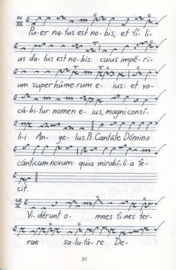 Pu-er na-tus est no-bis, et fi-li-
us da-tus est no-bis: cuius impé-ri-
um super húmerum e-ius: et vo-
cá-bi-tur nomen e-ius, magni consí-
li- An- ge- lus. Ps Cantáte Dómino
cánticum novum: quia mirabí-li-a fe-
cit.
Vi-dérunt o- mnes fi-nes ter-
rae sa-lu-tá-re De-
21